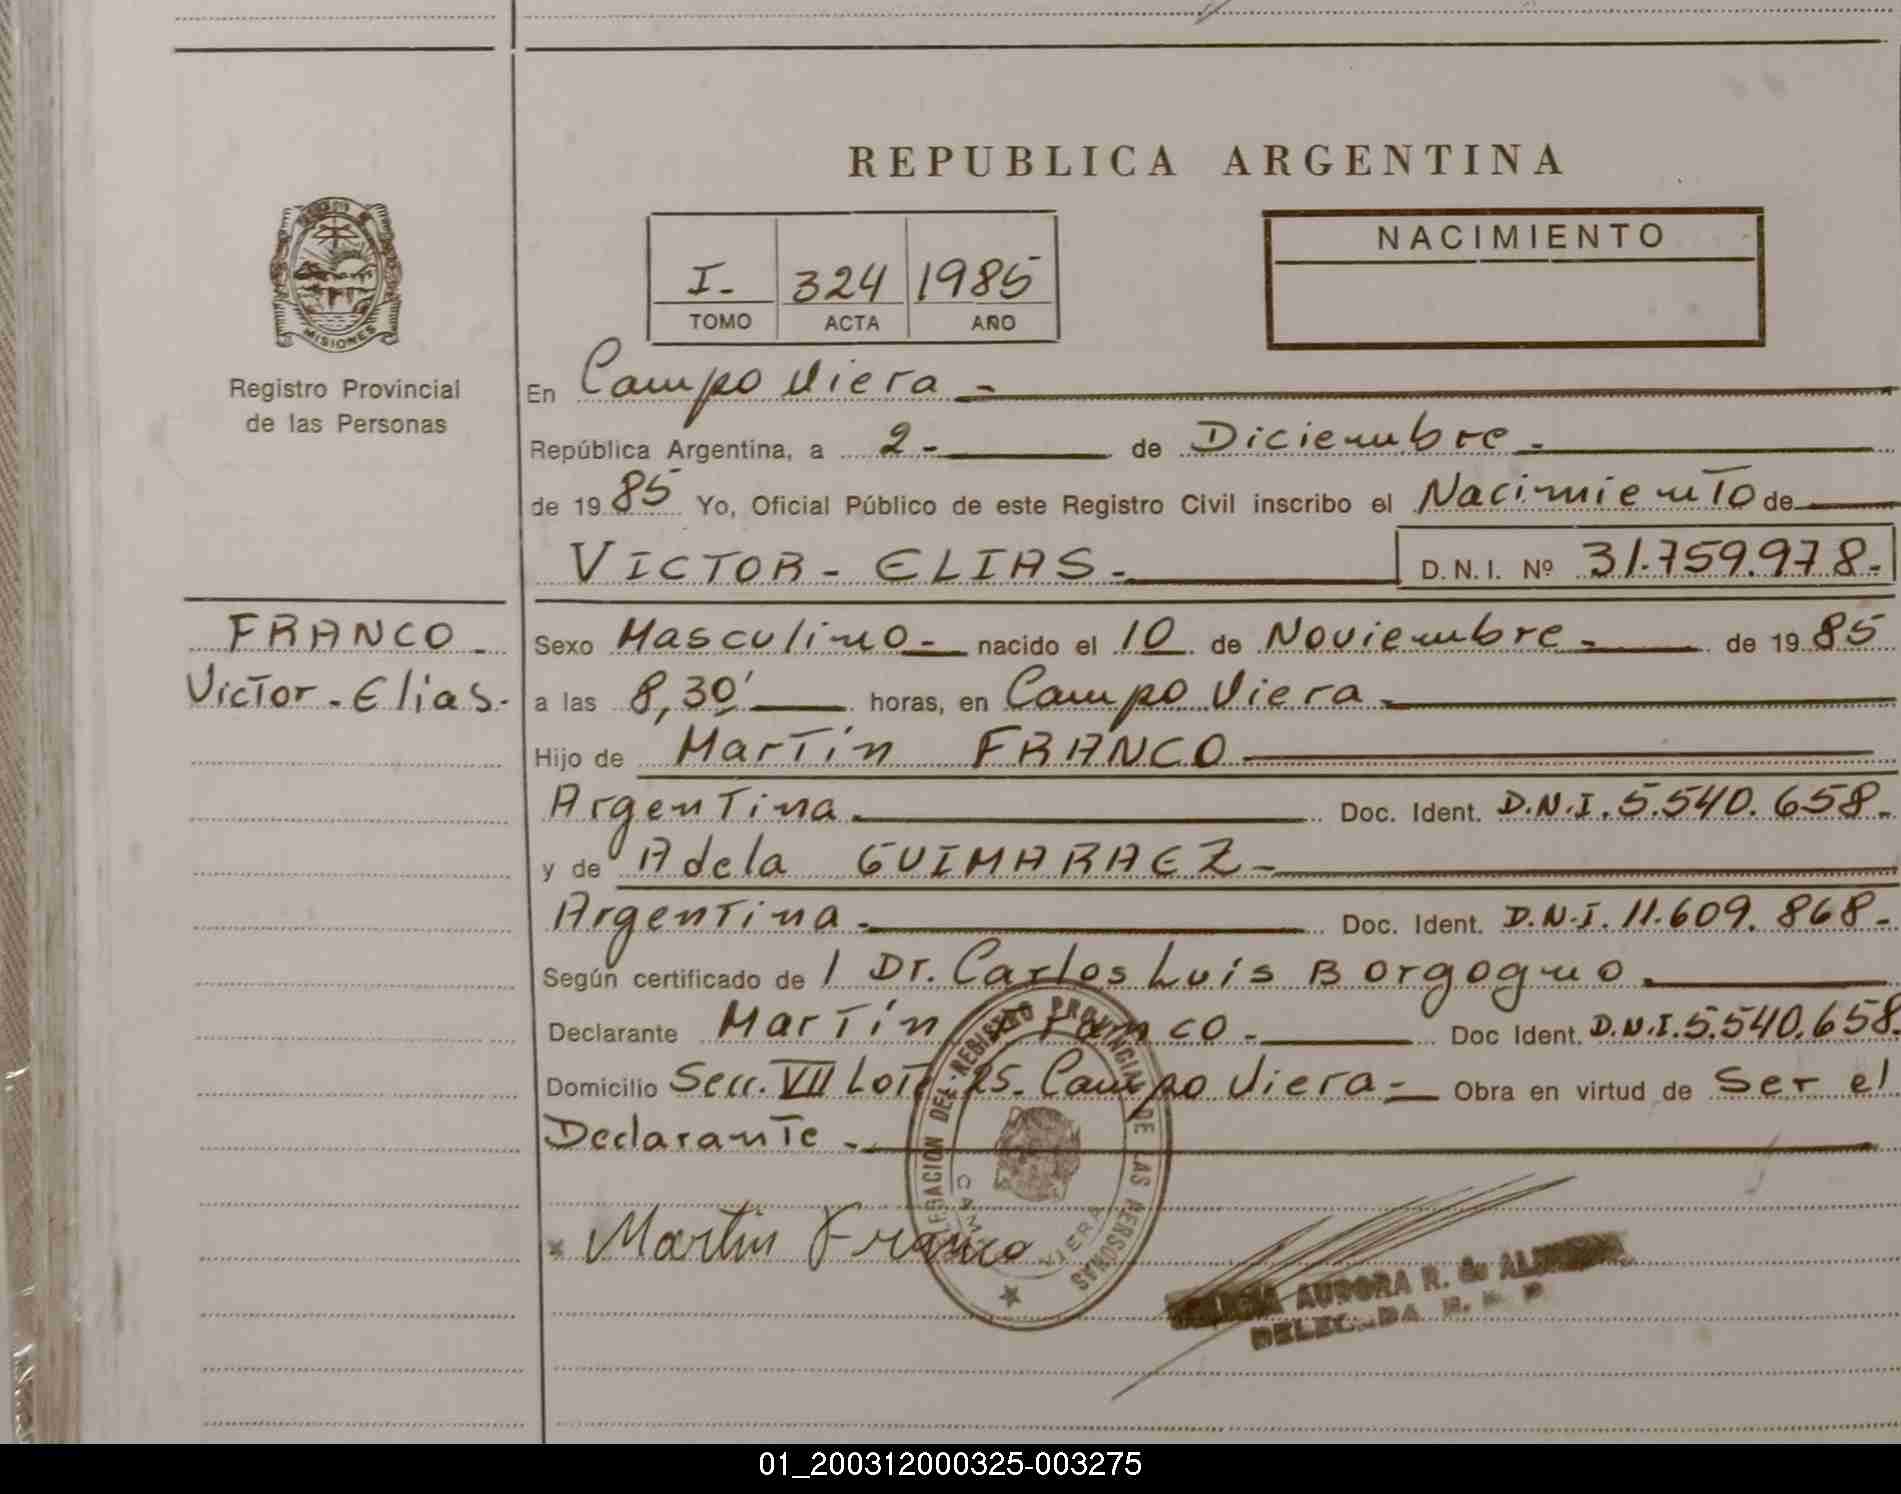 REPUBLICA ARGENTINA
NACIMIENTO
I- 324 1985
TOMO ACTA AÑO
MISIONES
Registro Provincial
de las Personas
En Campo Viera -
República Argentina, a 2- de Diciembre -
de 1985 Yo, Oficial Público de este Registro Civil inscribo el Nacimiento de
VICTOR - ELIAS - D.N.I. Nº 31.759.978.-
FRANCO -
Victor - Elias -
Sexo Masculino - nacido el 10 de Noviembre - de 1985
a las 8,30' horas, en Campo Viera -
Hijo de Martín FRANCO
Argentina - Doc. Ident. D.N.I. 5.540.658-
y de Adela GUIMARAEZ -
Argentina - Doc. Ident. D.N.I. 11.609.868-
Según certificado de / Dr. Carlos Luis Borgogno -
Declarante Martín Franco - Doc Ident. D.N.I. 5.540.658
Domicilio Secc. VII Lote 25- Campo Viera - Obra en virtud de Ser el
Declarante -
DEL REGISTRO PROVINCIAL DE LAS PERSONAS
VIERA
Martin Franco
AURORA R. de
DELEGADA R.
01_200312000325-003275